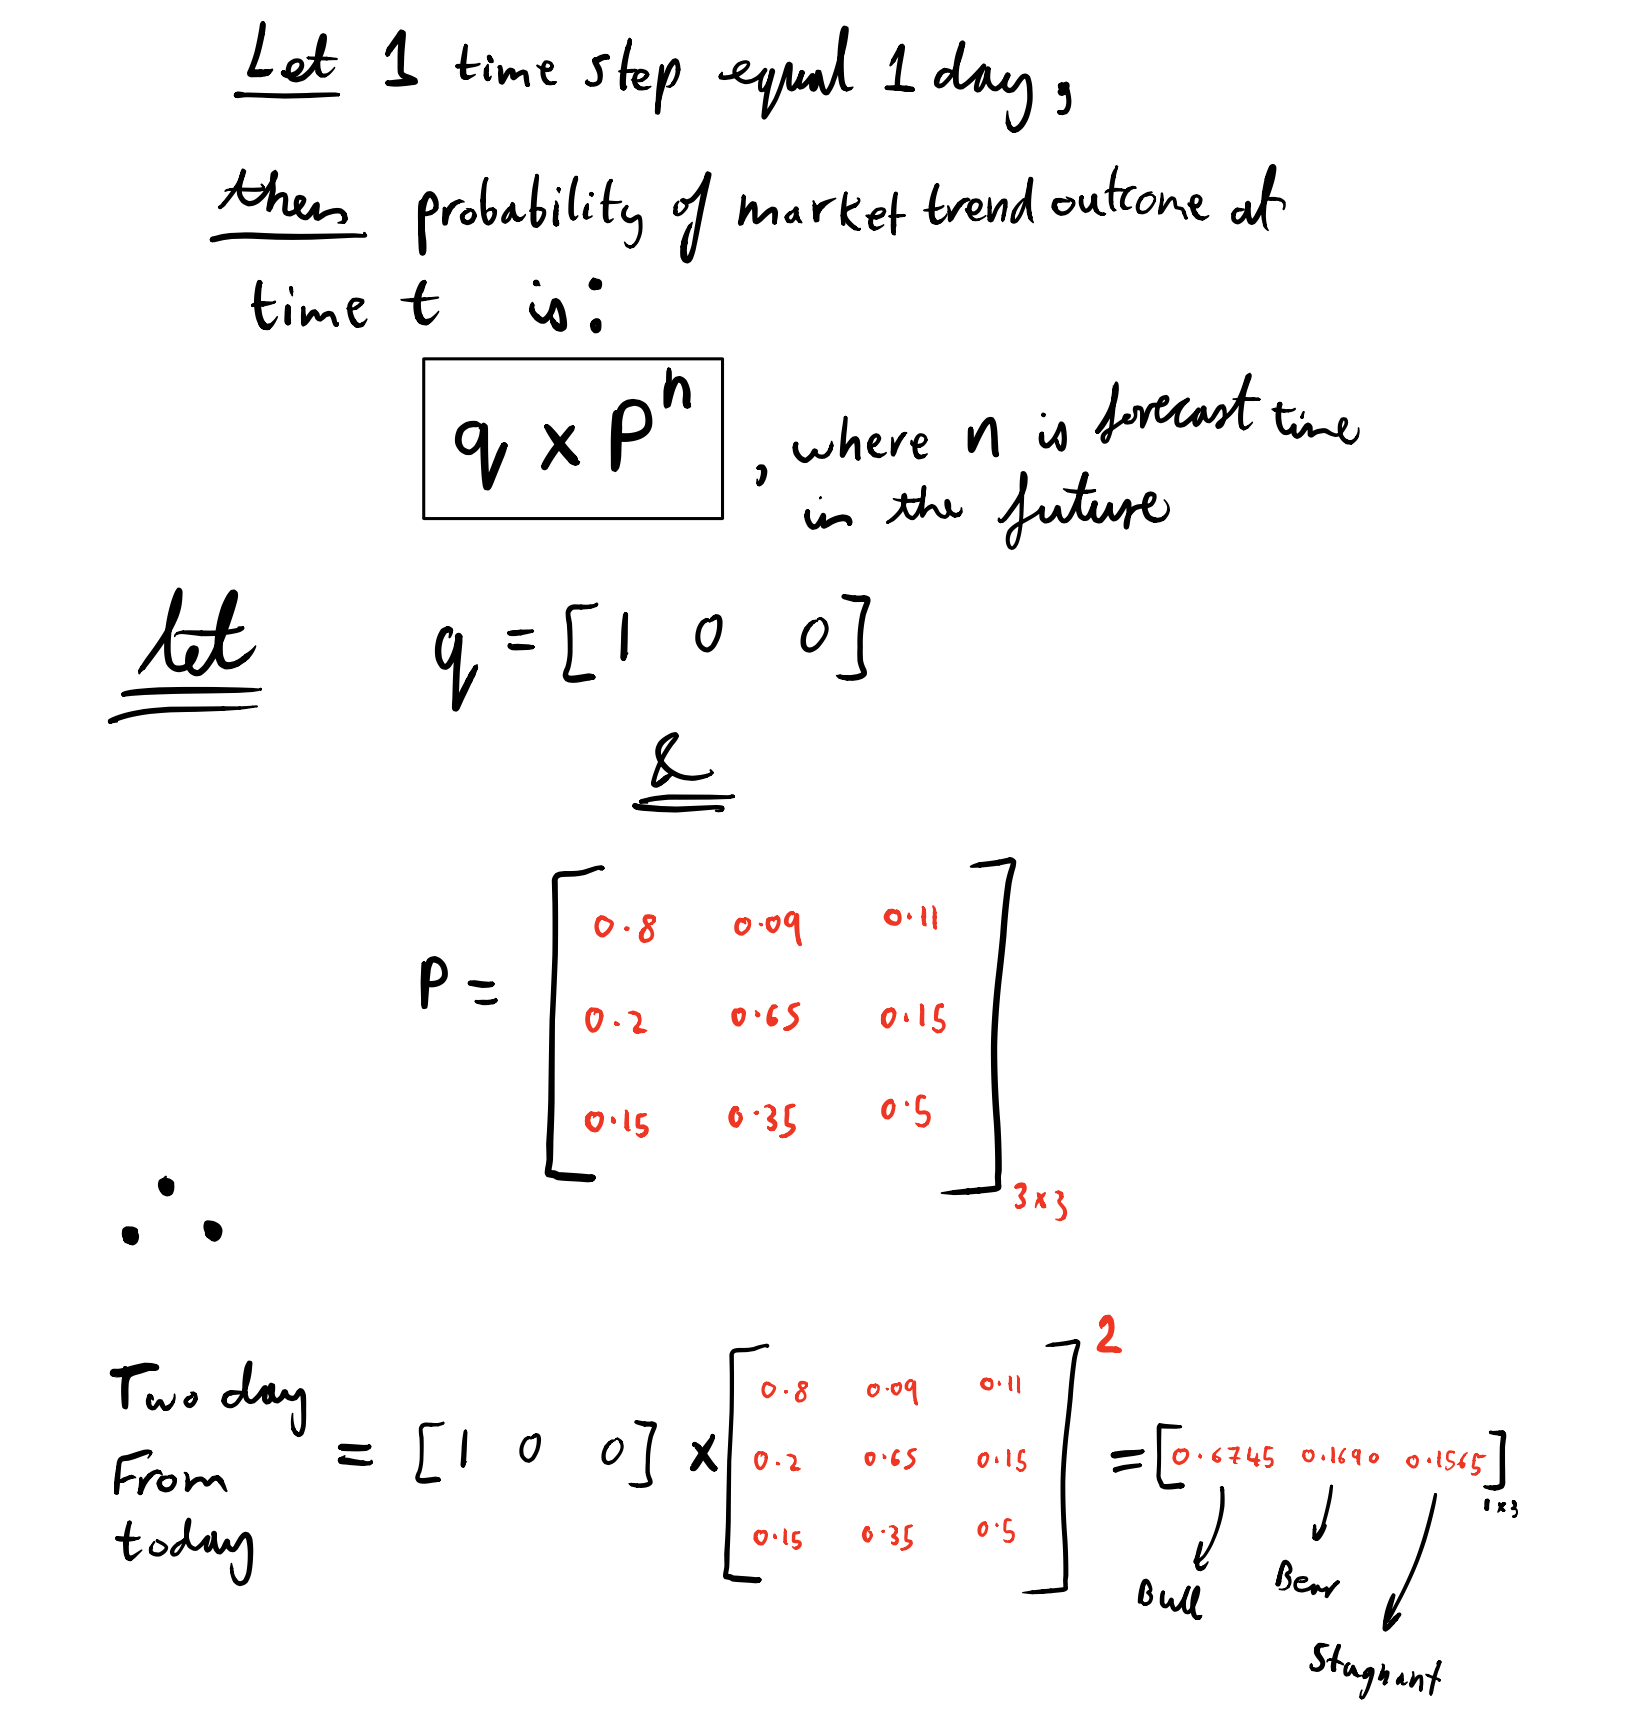 Let 1 time step equal 1 day,
then probability of market trend outcome at
time t is:
q x P^n , where n is forecast time
in the future
let q = [1 0 0]
&
P = [0.8 0.09 0.11
0.2 0.65 0.15
0.15 0.35 0.5] 3x3
∴
Two day From today = [1 0 0] x [0.8 0.09 0.11
0.2 0.65 0.15
0.15 0.35 0.5]^2 = [0.6745 0.1690 0.1565] 1x3
Bull Bear
Stagnant